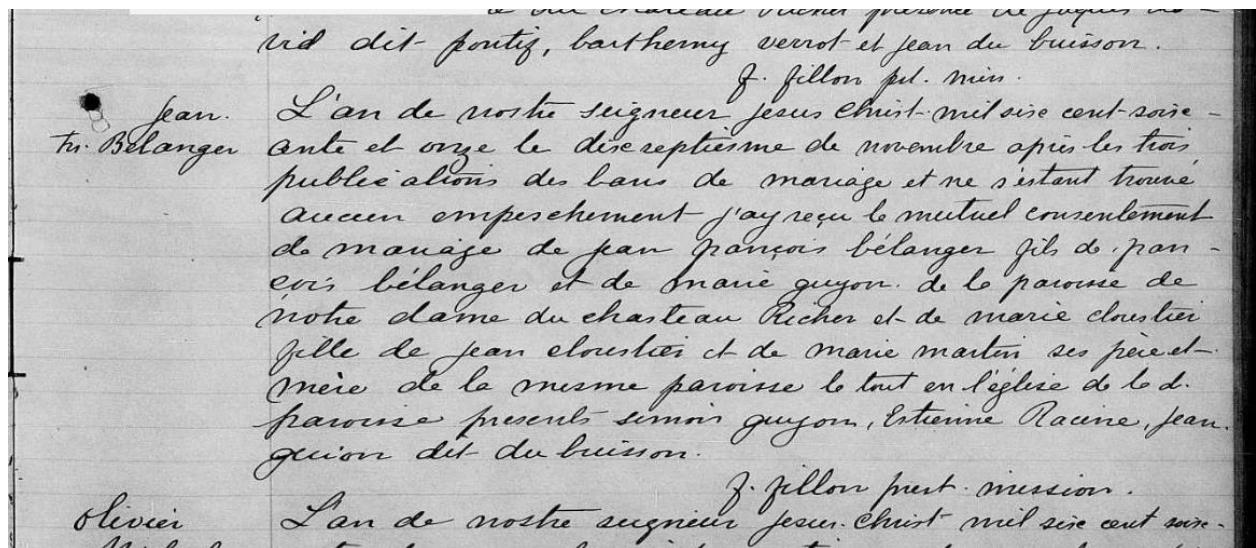 vid dit pontif, barthemy verrot et jean du buisson.
f. fillon pst. miss.
Jean. L'an de nostre seigneur Jesus Christ mil sixe cent soixe-
Fs. Bélanger ante et onze le dixseptiesme de novembre après les trois
publications des bans de mariage et ne s'estant trouvé
aucun empeschement j'ay reçu le mutuel consentement
de mariage de jean françois bélanger fils de fran-
çois bélanger et de marie guyon de la paroisse de
nôtre dame du chasteau Richer et de marie cloustier
fille de jean cloustier et de marie martin ses père et
mère de la mesme paroisse le tout en l'église de la d.
paroisse presents simon guyon, Estienne Racine, jean
guion dit du buisson.
f. fillon prest. mission.
Olivier L'an de nostre seigneur Jesus Christ mil sixe cent soixe-